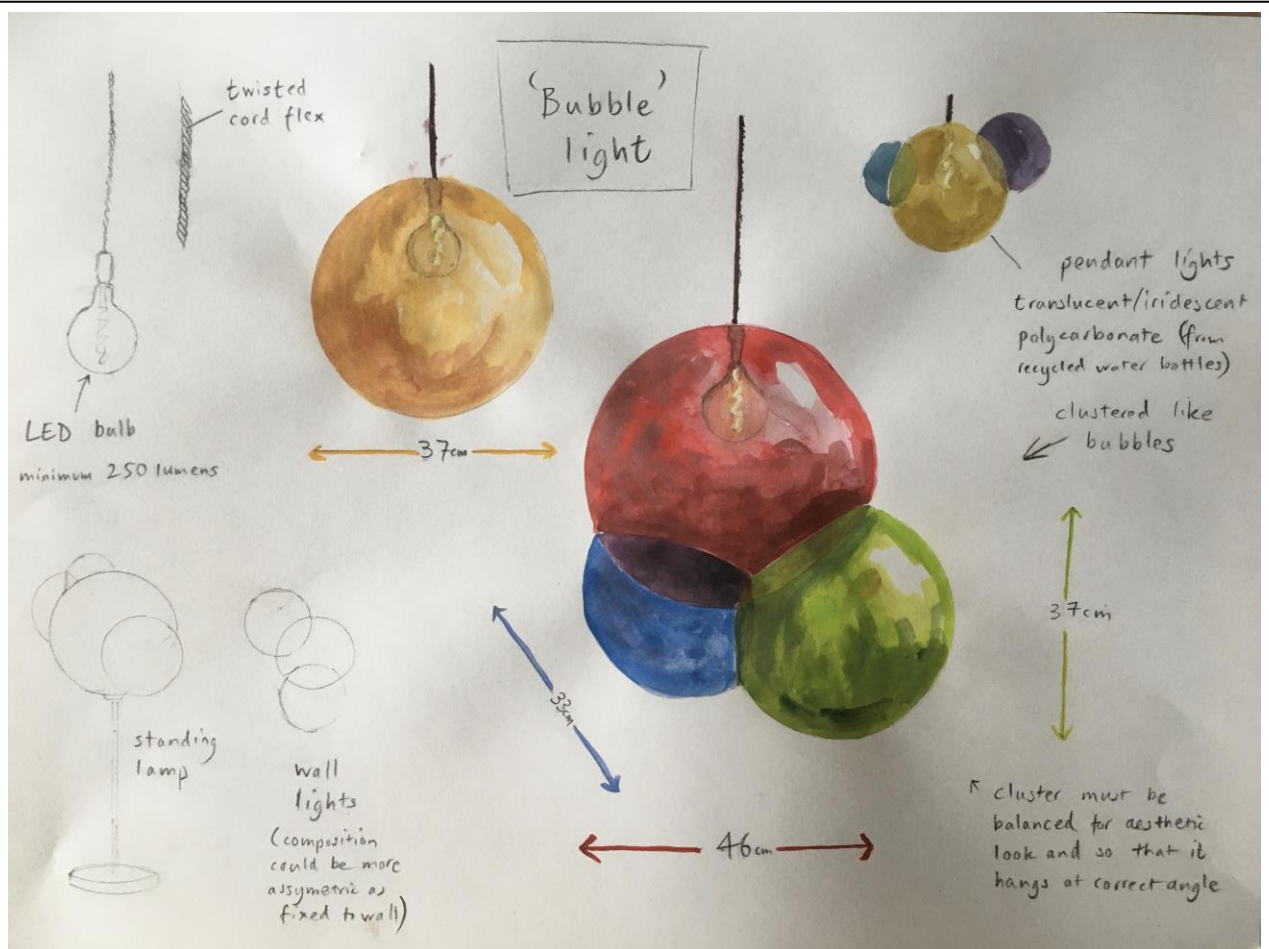 twisted
cord flex
'Bubble'
light
LED bulb
minimum 250 lumens
37cm
pendant lights
translucent/iridescent
polycarbonate (from
recycled water bottles)
clustered like
bubbles
37cm
33cm
46cm
standing
lamp
wall
lights
(composition
could be more
assymetric as
fixed to wall)
cluster must be
balanced for aesthetic
look and so that it
hangs at correct angle